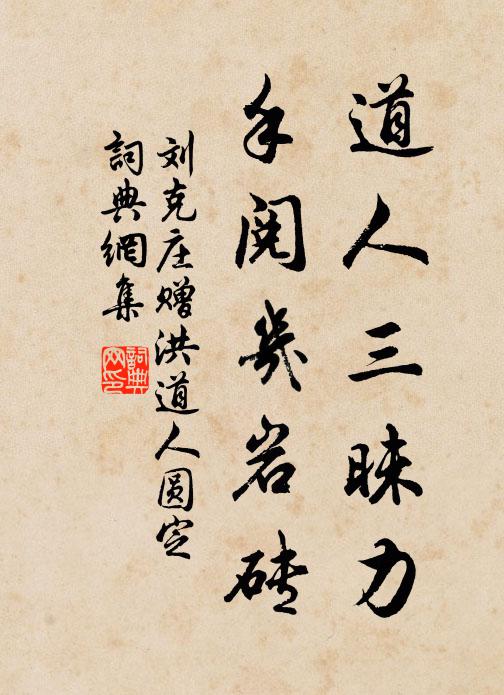 道人三昧力
手阅几岩砖
刘克庄赠洪道人圆定
詞典網集
詞典网印